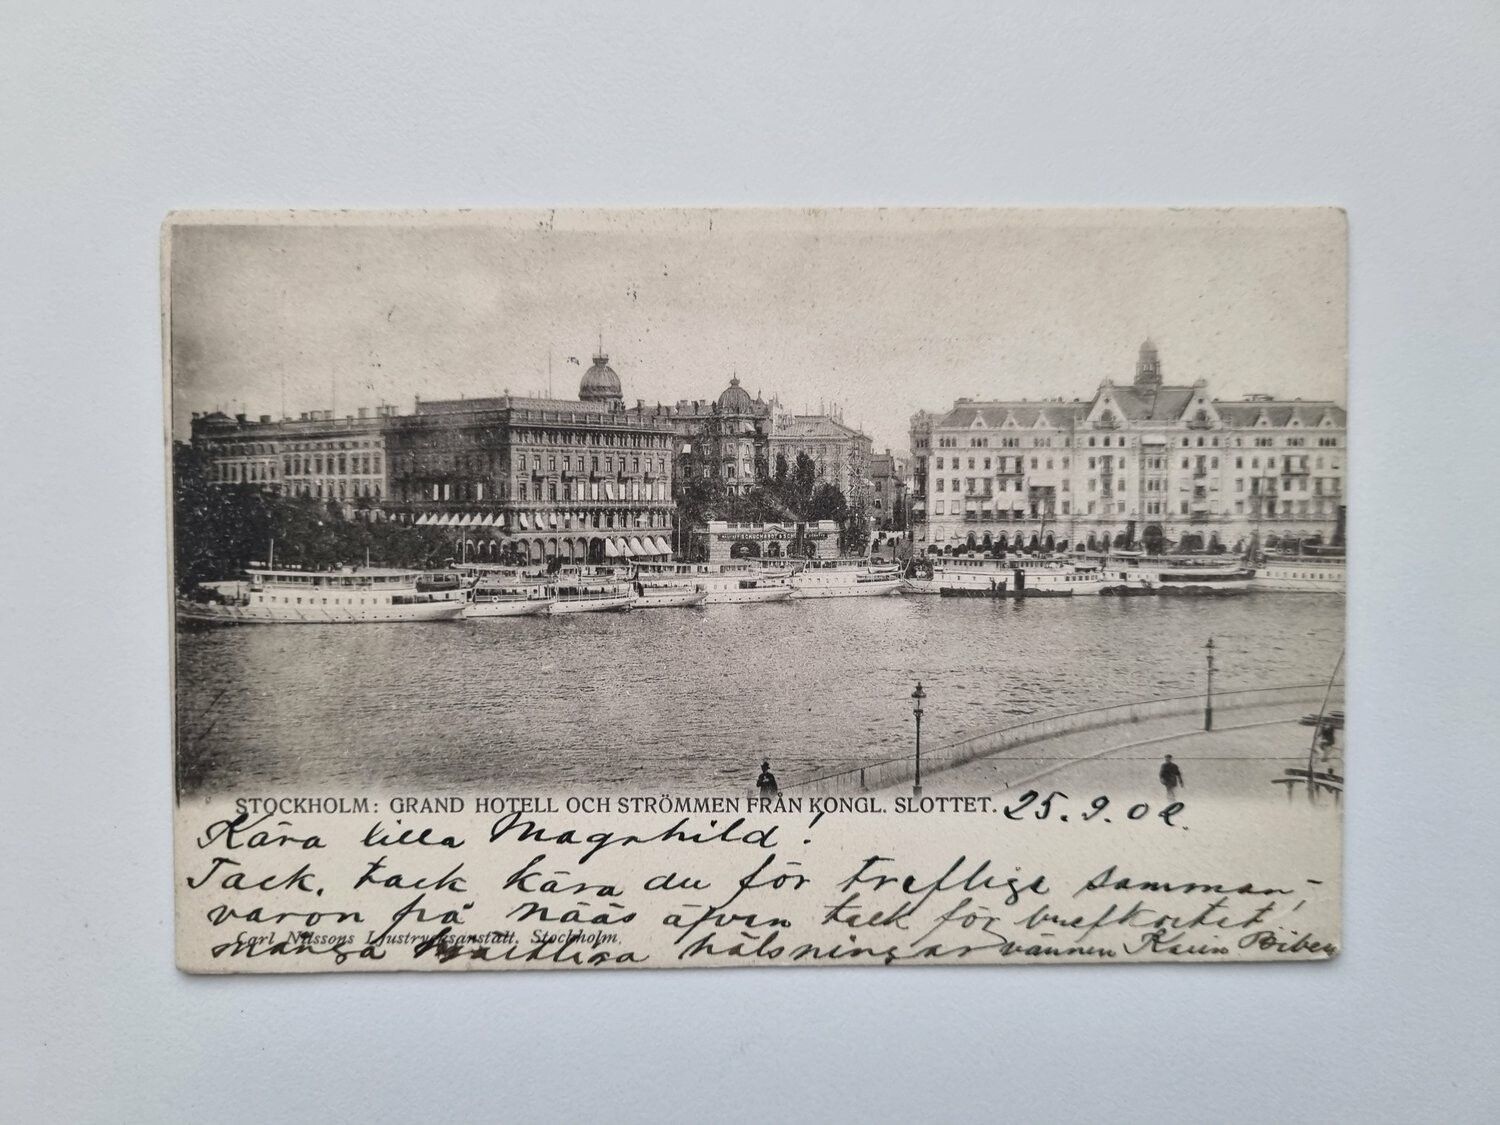 STOCKHOLM: GRAND HOTELL OCH STRÖMMEN FRÅN KONGL. SLOTTET. 25.9.02.
Kära lilla Magnhild!
Tack, tack kära du för treflige samman-
varon på Nääs äfven tack för brefkortet
Carl Nilssons Ljustrycksanstalt, Stockholm.
många hälsningar vännen Karin